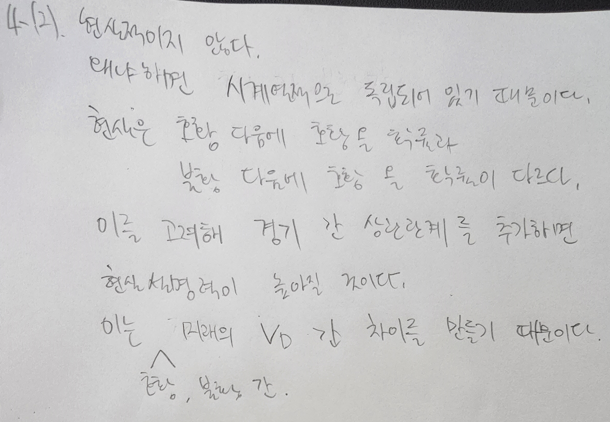 4-(2). 현실적이지 않다.
왜냐하면 시계열적으로 독립되어 있기 때문이다.
현실은 호황 다음에 호황 올 확률과
불황 다음에 호황 올 확률이 다르다.
이를 고려해 경기 간 상관관계를 추가하면
현실 설명력이 높아질 것이다.
이는 미래의 V_D 값 차이를 만들기 때문이다.
호황, 불황 간.